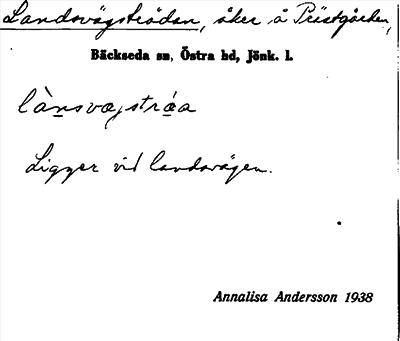 Landsvägsträdan, åker å Prästgården,
Bäckseda sn, Östra hd, Jönk. l.
lànsvægstráa
Ligger vid landsvägen.
Annalisa Andersson 1938